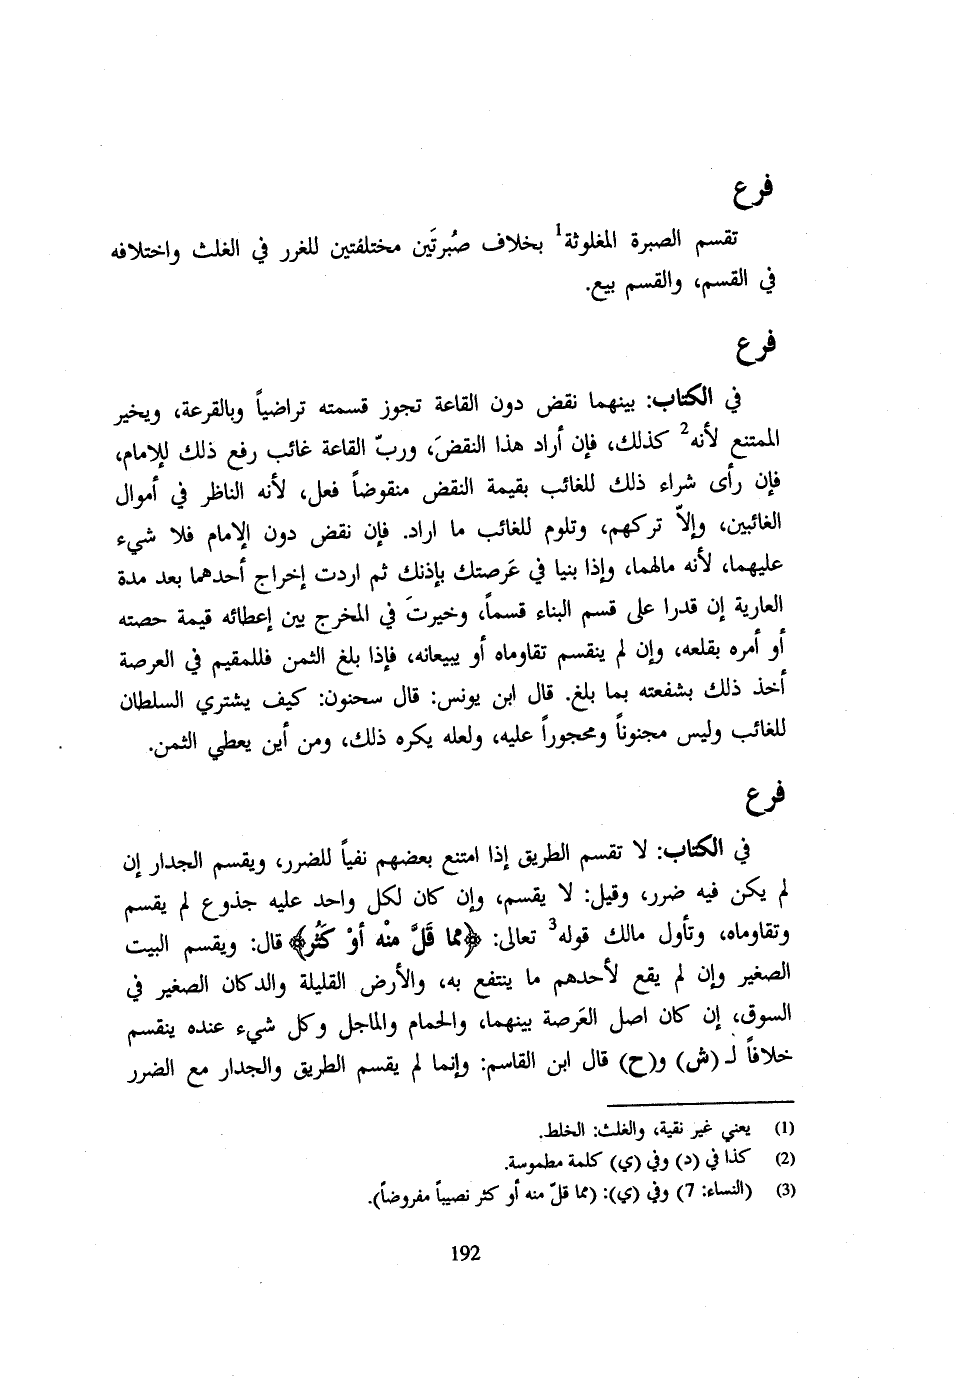 فرع
تقسم الصبرة المغلوثة1 بخلاف صُبرتَين مختلفتين للغرر في الغلث واختلافه
في القسم، والقسم بيع.
فرع
في الكتاب: بينهما نقض دون القاعة تجوز قسمته تراضياً وبالقرعة، ويخير
الممتنع لأنه2 كذلك، فإن أراد هذا النقضَ، وربّ القاعة غائب رفع ذلك للإمام،
فإن رأى شراء ذلك للغائب بقيمة النقض منقوضاً فعل، لأنه الناظر في أموال
الغائبين، وإلاّ تركهم، وتلوم للغائب ما اراد. فإن نقض دون الإمام فلا شيء
عليهما، لأنه مالهما، وإذا بنيا في عَرصتك بإذنك ثم اردت إخراج أحدهما بعد مدة
العارية إن قدرا على قسم البناء قسماً، وخيرتَ في المخرج بين إعطائه قيمة حصته
أو أمره بقلعه، وإن لم ينقسم تقاوماه أو يبيعانه، فإذا بلغ الثمن فللمقيم في العرصة
أخذ ذلك بشفعته بما بلغ. قال ابن يونس: قال سحنون: كيف يشتري السلطان
للغائب وليس مجنوناً ومحجوراً عليه، ولعله يكره ذلك، ومن أين يعطي الثمن.
فرع
في الكتاب: لا تقسم الطريق إذا امتنع بعضهم نفياً للضرر، ويقسم الجدار إن
لم يكن فيه ضرر، وقيل: لا يقسم، وإن كان لكل واحد عليه جذوع لم يقسم
وتقاوماه، وتأول مالك قوله3 تعالى: ﴿مما قَلَّ منْه أوْ كَثُر﴾ قال: ويقسم البيت
الصغير وإن لم يقع لأحدهم ما ينتفع به، والأرض القليلة والدكان الصغير في
السوق، إن كان اصل العَرصة بينهما، والحمام والماجل وكل شيء عنده ينقسم
خلافاً لـ (ش) و(ح) قال ابن القاسم: وإنما لم يقسم الطريق والجدار مع الضرر
(1) يعني غير نقية، والغلث: الخلط.
(2) كذا في (د) وفي (ي) كلمة مطموسة.
(3) (النساء: 7) وفي (ي): (مما قلّ منه أو كثر نصيباً مفروضاً).
192